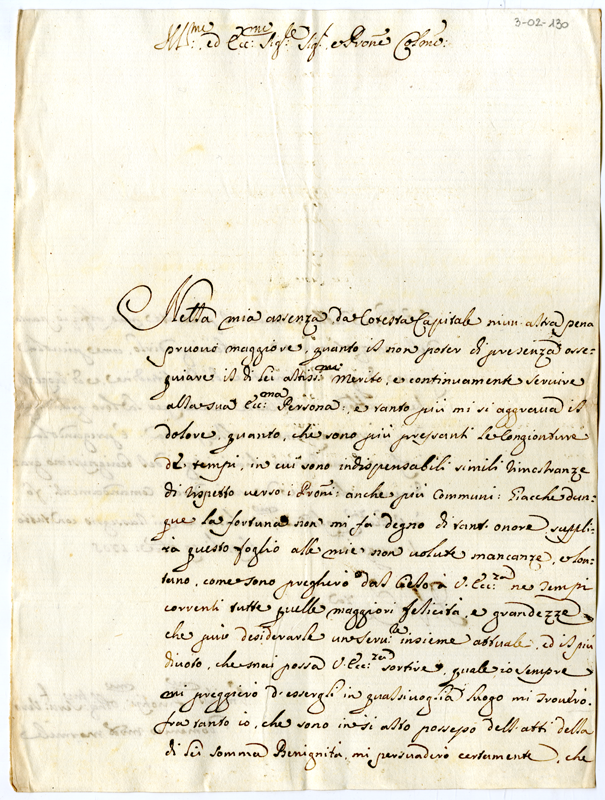 3-02-130
Ill:mo ed Ecc:mo Sig:re Sig:r e Prone Colmo:
Nella mia assenza da Cotesta Capitale niun altra pena
pruovo maggiore, quanto il non poter di presenza osse-
quiare il di Lei altiss:mo Merito, e continuamente servire
alla sua Ecc:ma Persona: e tanto più mi si aggrava il
dolore, quanto, che sono più pressanti le Congionture
de tempi, in cui sono indispensabili simili rimostranze
di rispetto verso i Proni: anche più Communi: Giacche dun-
que la fortuna non mi fà degno di tant onore suppli-
rà questo foglio alle mie non volute mancanze, e lon-
tano, come sono pregherò dal Cielo à V. Ecc:za ne tempi
correnti tutte quelle maggiori felicità, e grandezze
che può desiderarle un serv:re insieme attuale, ed il più
divoto, che mai possa V. Ecc:za sortire, quale io sempre
mi preggierò d'essergli in qualsivoglia luogo mi troverò.
fra tanto io, che sono in sì alto possesso dell'atti della
di Lei somma Benignità, mi persuadero certamente, che